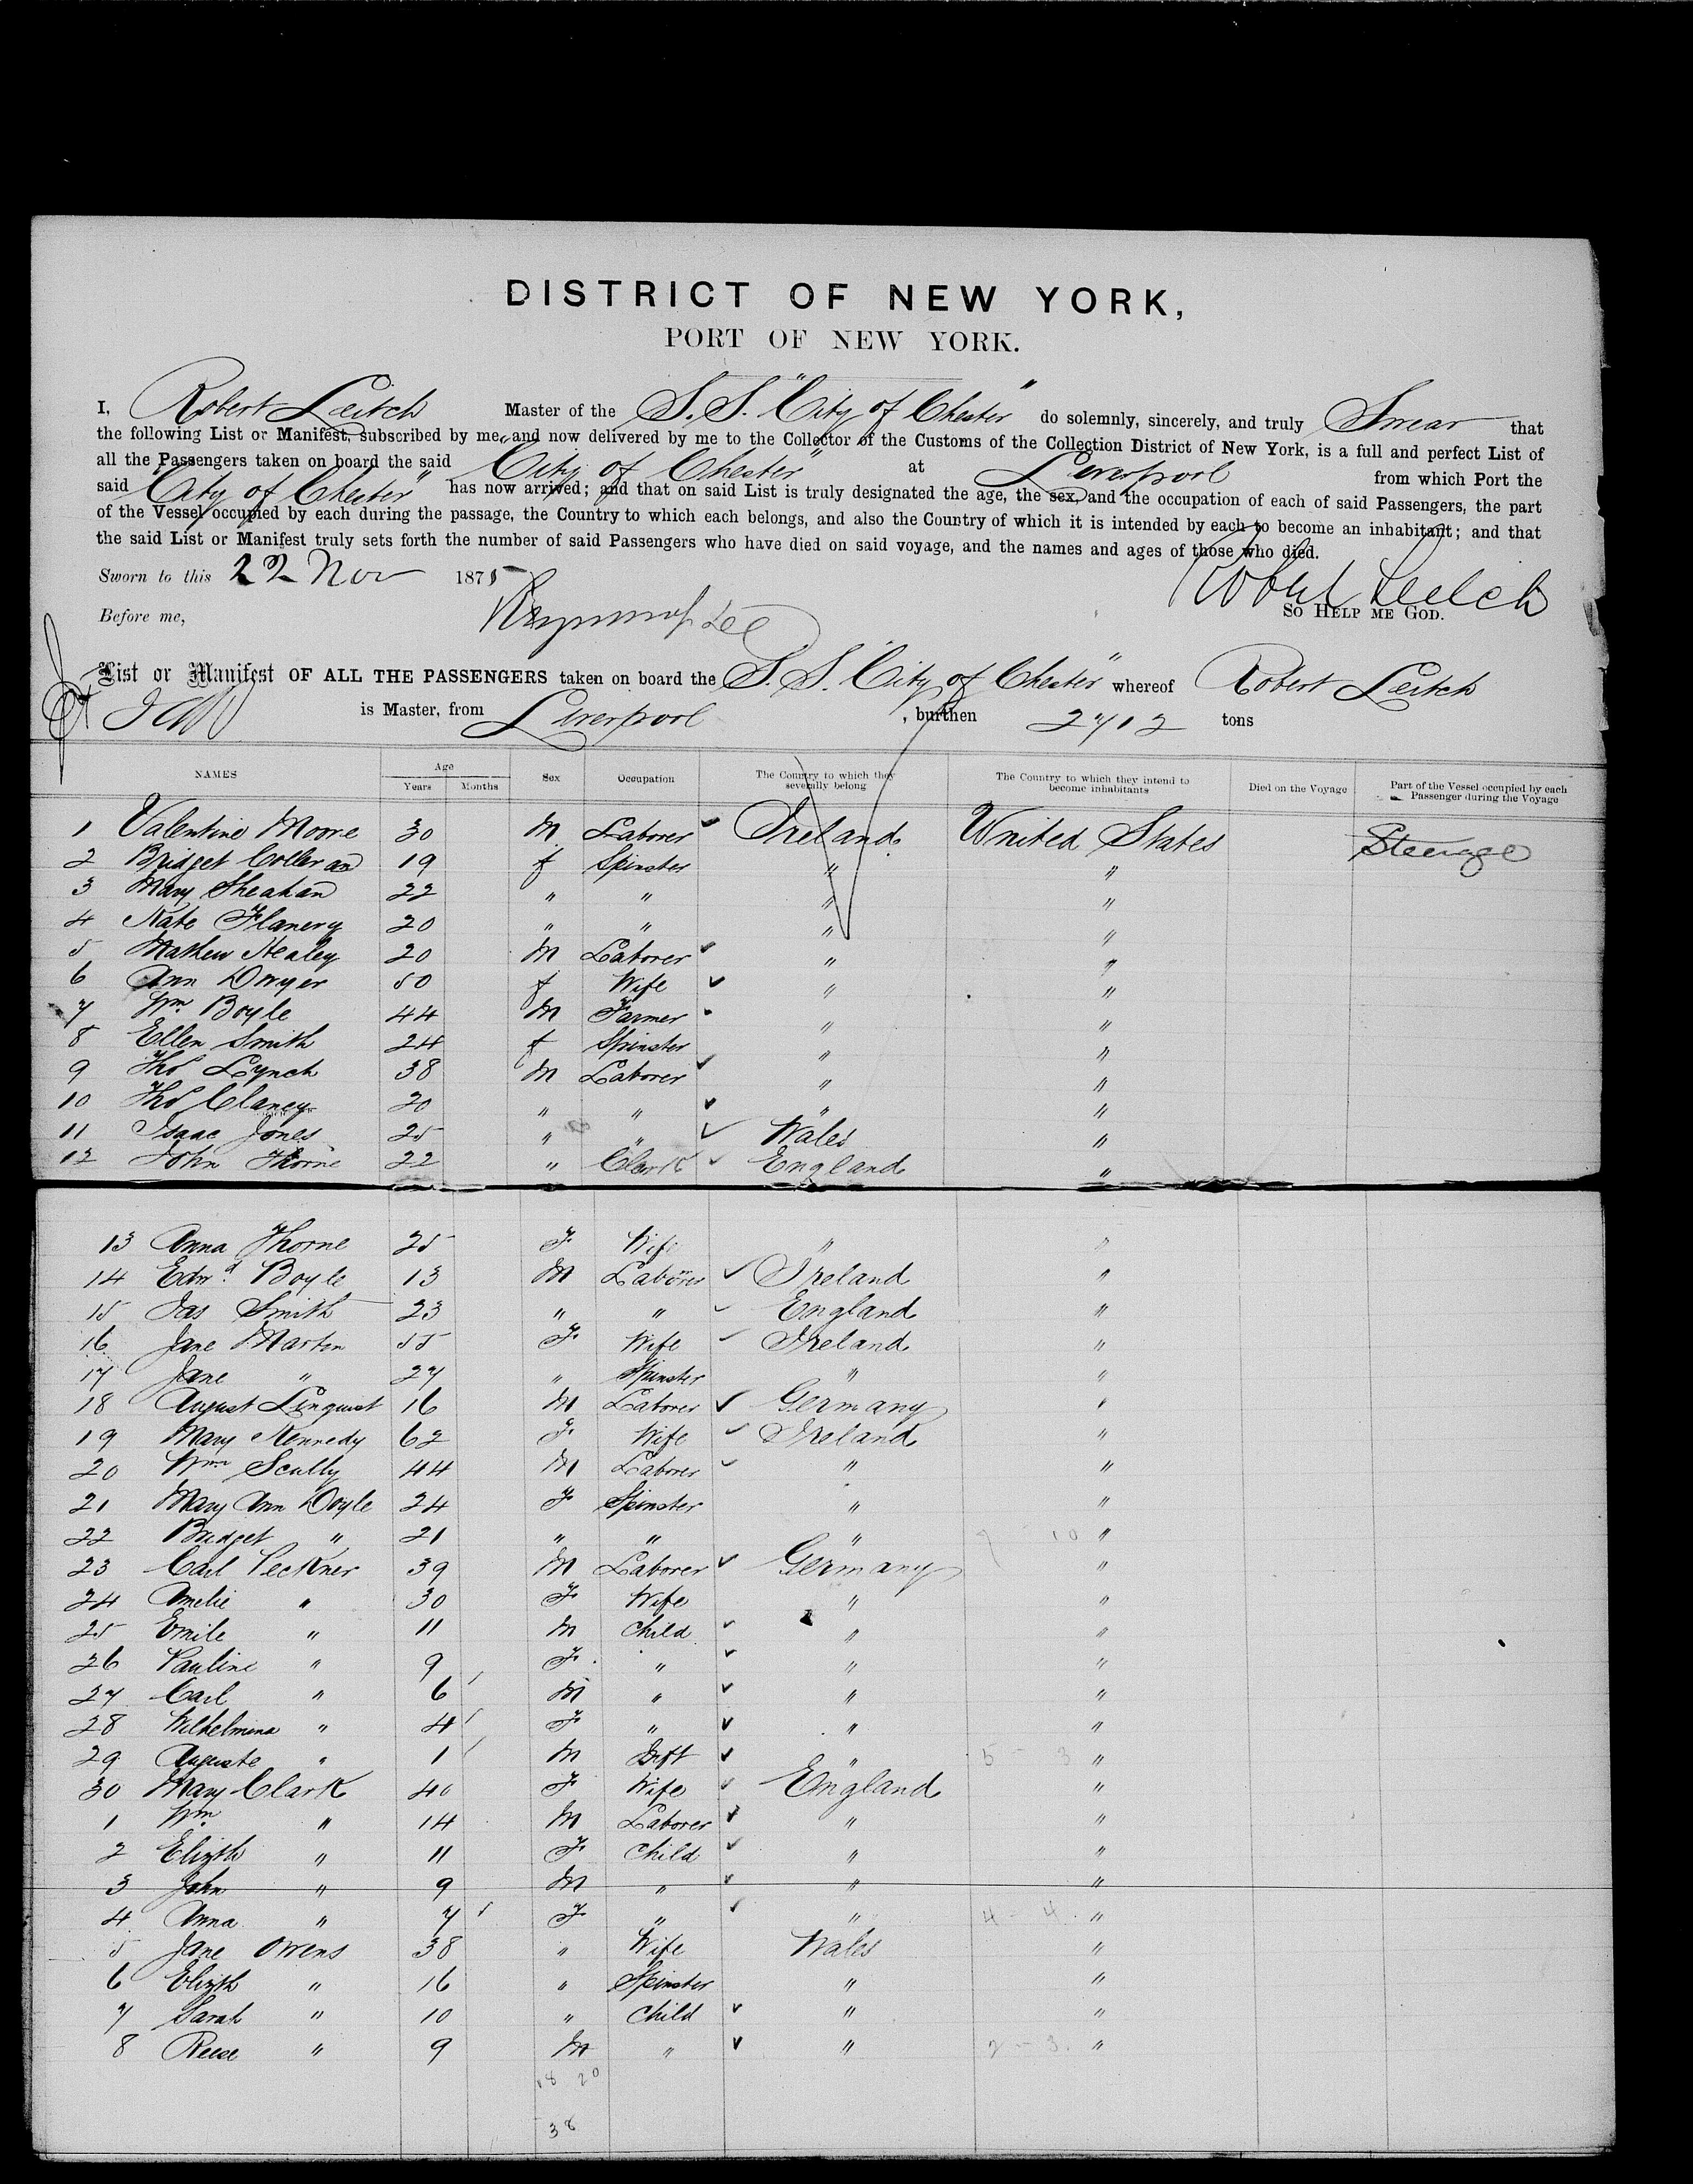 DISTRICT OF NEW YORK,
PORT OF NEW YORK.
I, Robert Leitch Master of the S.S. "City of Chester" do solemnly, sincerely, and truly Swear that
the following List or Manifest, subscribed by me, and now delivered by me to the Collector of the Customs of the Collection District of New York, is a full and perfect List of
all the Passengers taken on board the said "City of Chester" at Liverpool from which Port the
said "City of Chester" has now arrived; and that on said List is truly designated the age, the sex, and the occupation of each of said Passengers, the part
of the Vessel occupied by each during the passage, the Country to which each belongs, and also the Country of which it is intended by each to become an inhabitant; and that
the said List or Manifest truly sets forth the number of said Passengers who have died on said voyage, and the names and ages of those who died.
Sworn to this 22 Nov 1875 Robert Leitch
Before me, So HELP ME GOD.
List or Manifest OF ALL THE PASSENGERS taken on board the S.S. "City of Chester" whereof Robert Leitch
is Master, from Liverpool, burthen 2712 tons
NAMES Age Years Months Sex Occupation The Country to which they severally belong The Country to which they intend to become inhabitants Died on the Voyage Part of the Vessel occupied by each Passenger during the Voyage
1 Valentine Moore 30 M Laborer Ireland United States Steerage
2 Bridget Colleran 19 f Spinster " "
3 Mary Sheahan 22 " " " "
4 Kate Flanery 20 " " " "
5 Mathew Healey 20 M Laborer " "
6 Ann Dwyer 50 f Wife " "
7 Wm Boyle 44 M Farmer " "
8 Ellen Smith 24 f Spinster " "
9 Thos Lynch 38 M Laborer " "
10 Thos Clancy 20 " " " "
11 Isaac Jones 25 " " Wales "
12 John Thorne 22 " Clark England "
13 Anna Thorne 25 F Wife " "
14 Edwd Boyle 13 M Laborer Ireland "
15 Jas Smith 23 " " England "
16 Jane Martin 55 F Wife Ireland "
17 Jane " 27 " Spinster " "
18 August Linquist 16 M Laborer Germany "
19 Mary Kennedy 62 F Wife Ireland "
20 Wm Scully 44 M Laborer " "
21 Mary Ann Doyle 24 F Spinster " "
22 Bridget " 21 " " " "
23 Carl Peckner 39 M Laborer Germany "
24 Amelie " 30 F Wife " "
25 Emile " 11 M Child " "
26 Pauline " 9 F " " "
27 Carl " 6 M " " "
28 Wilhelmina " 4 F " " "
29 Auguste " 1 M Inft " 5 - 3 "
30 Mary Clark 40 F Wife England "
1 Wm " 14 M Laborer " "
2 Elizth " 11 F Child " "
3 John " 9 M " " "
4 Anna " 7 F " " 4 - 4 "
5 Jane Owens 38 " Wife Wales "
6 Elizth " 16 " Spinster " "
7 Sarah " 10 " Child " "
8 Reese " 9 M " " 2 - 3 "
18 20
38